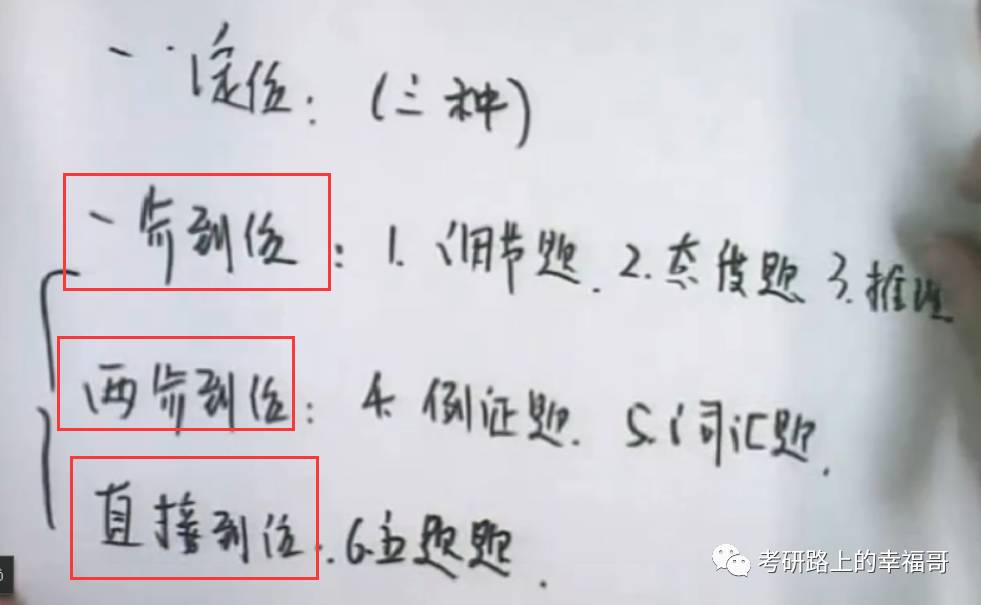 一.定位：（三种）
一步到位：1.细节题.2.态度题3.推理
两步到位：4.例证题.5.词汇题.
直接到位：6.主题题.
考研路上的幸福哥